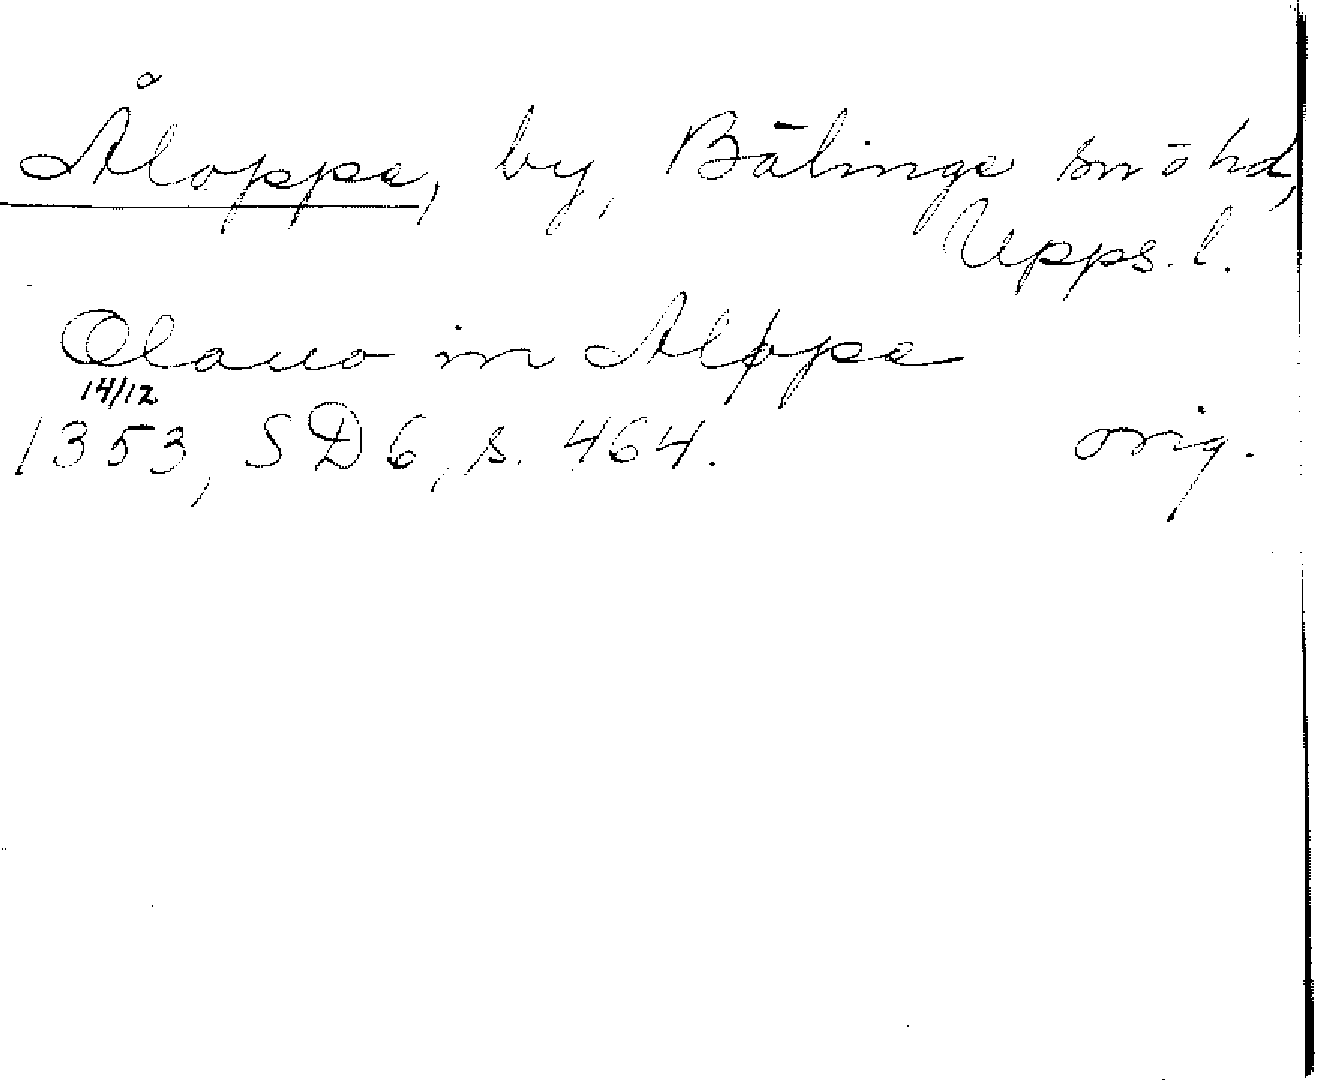 Åloppe, by, Bälinge sn o hd,
Upps. l.
Olauo in Aløppe
14/12
1353, SD 6, s. 464. orig.